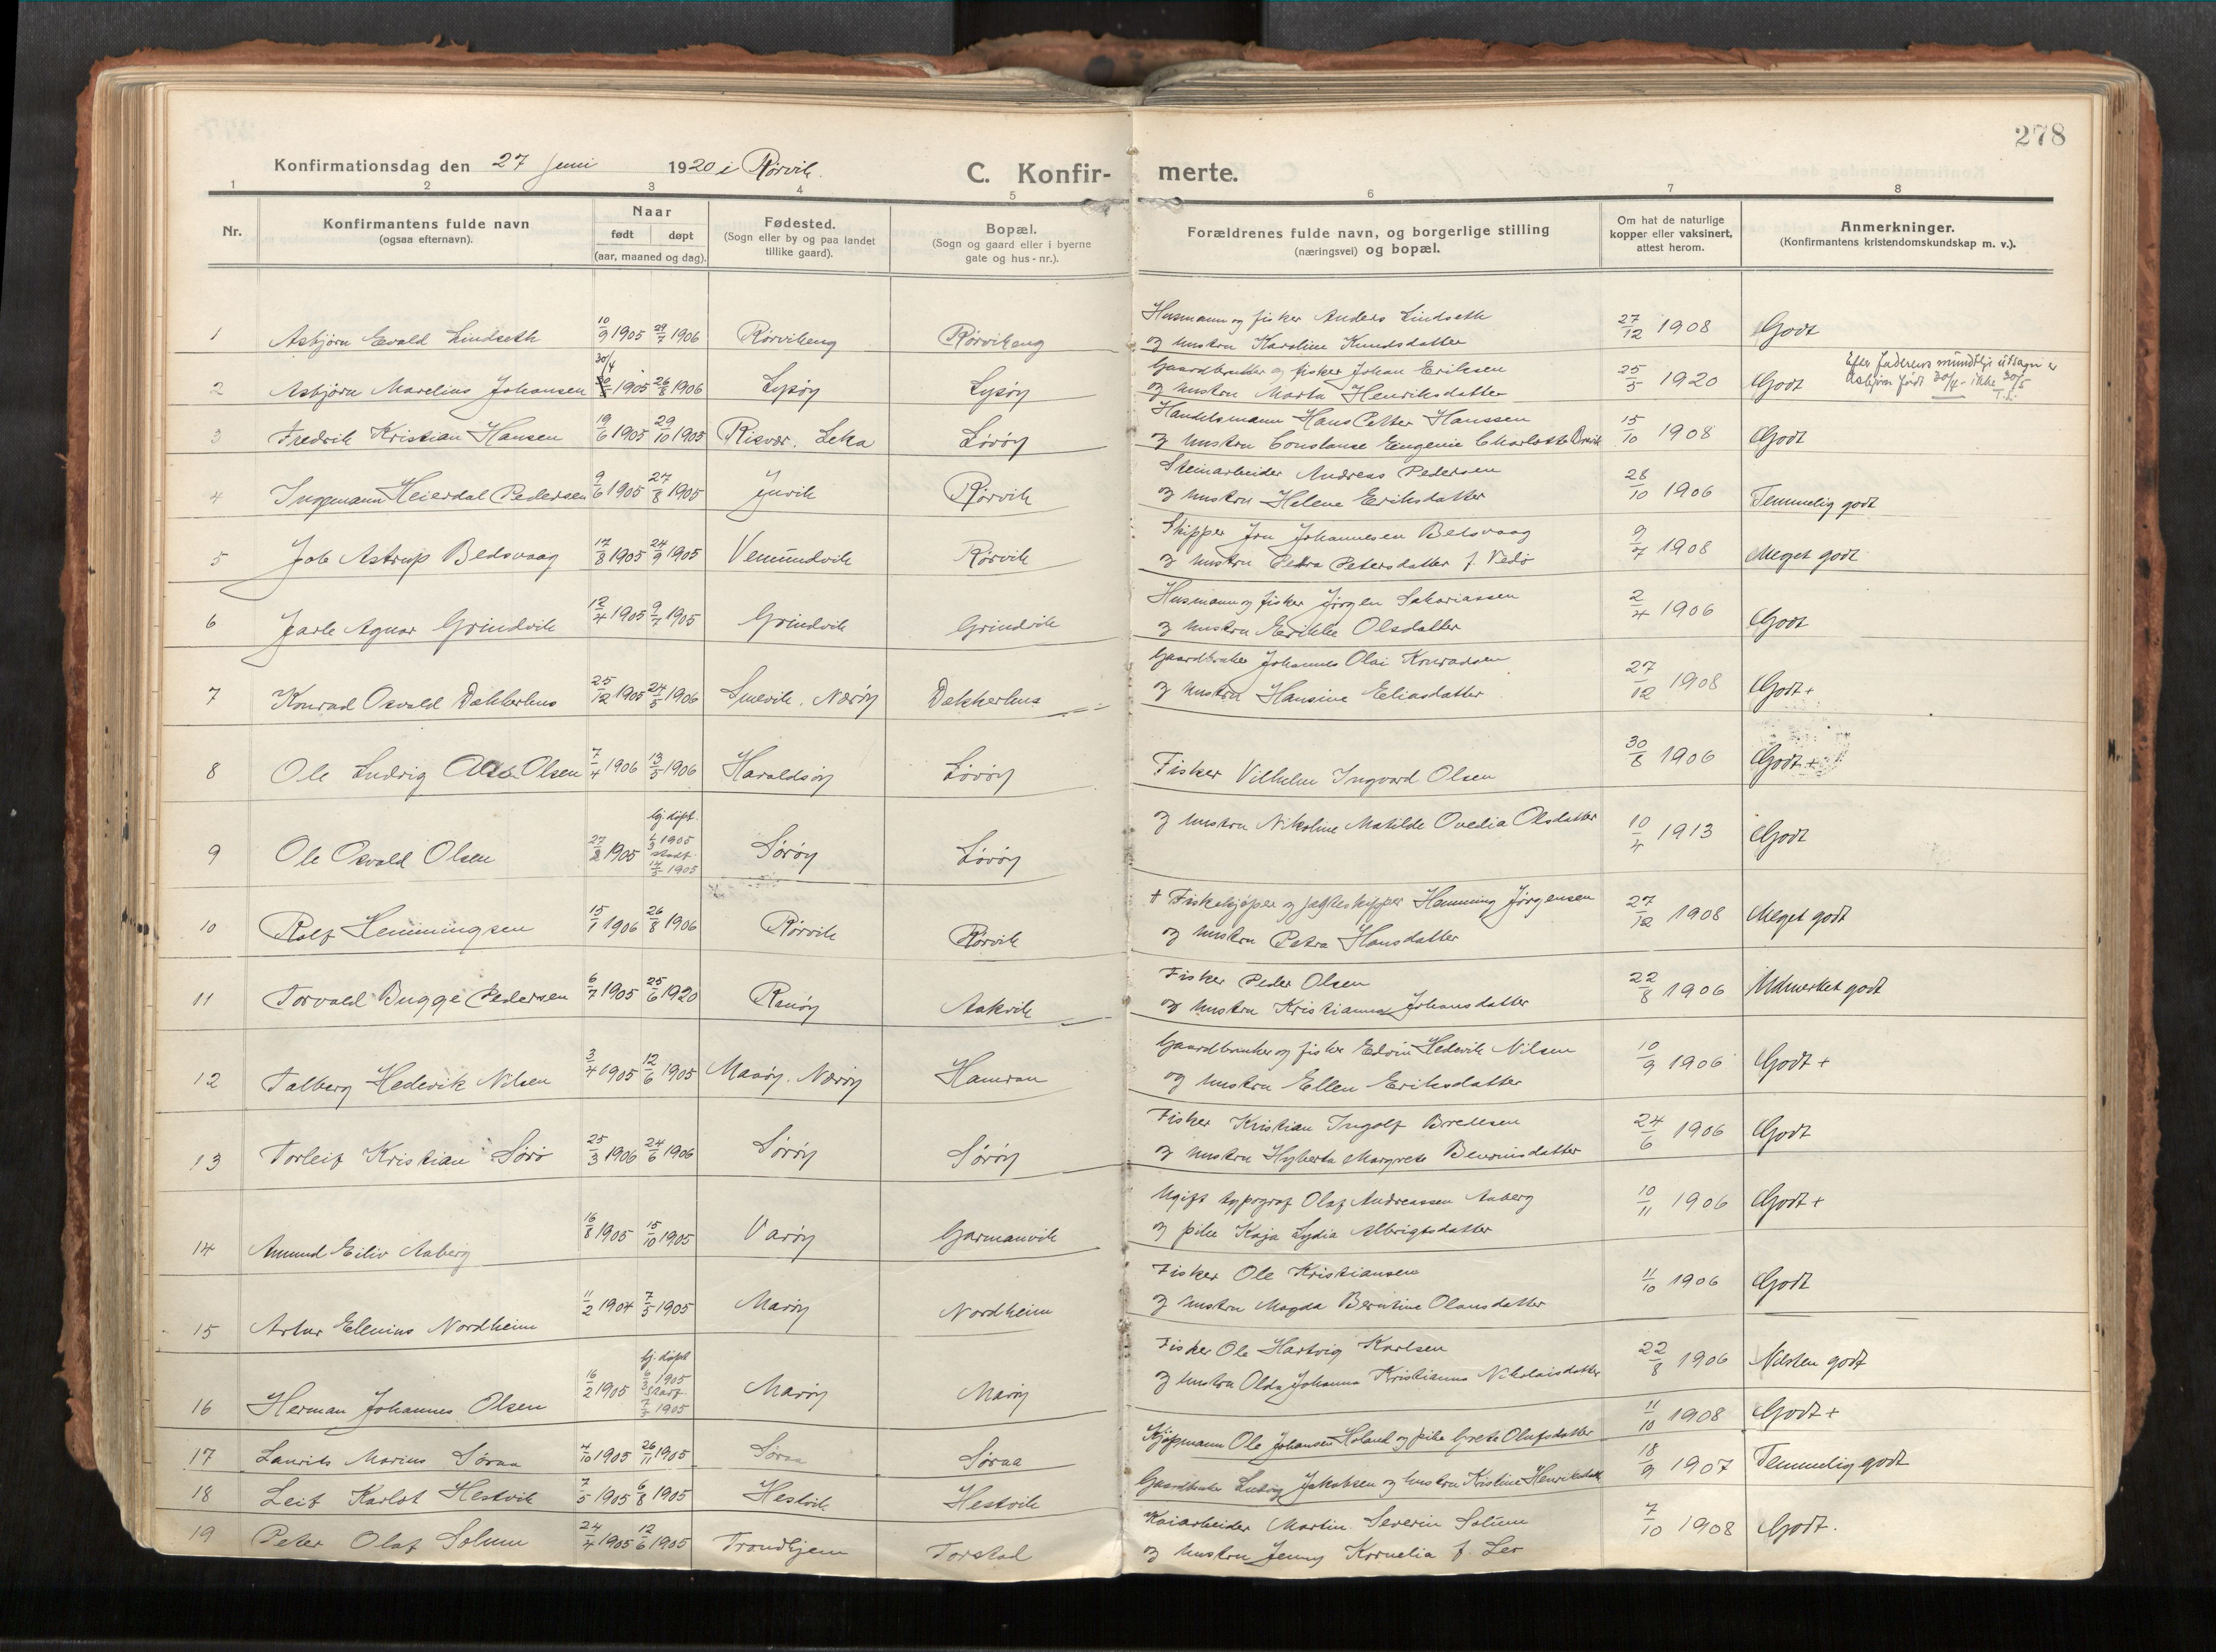 278
Konfirmationsdag den 27 Juni 1920 i Rørvik.
C. Konfirmerte.
1 2 3 4 5 6 7 8
Nr.
Konfirmantens fulde navn
(ogsaa efternavn).
Naar
født døpt
(aar, maaned og dag).
Fødested.
(Sogn eller by og paa landet
tillike gaard).
Bopæl.
(Sogn og gaard eller i byerne
gate og hus-nr.).
Forældrenes fulde navn, og borgerlige stilling
(næringsvei) og bopæl.
Om hat de naturlige
kopper eller vaksinert,
attest herom.
Anmerkninger.
(Konfirmantens kristendomskundskap m. v.).
1 Asbjørn Evald Lindseth 10/9 1905 29/7 1906 Rørvikeng Rørvikeng
Husmann og fisker Anders Lindseth
og hustru Karoline Knudsdatter
27/12 1908 Godt
2 Asbjørn Marelius Johansen 30/4 1905 26/8 1906 Lysøy Lysøy
Gaardbruker og fisker Johan Eriksen
og hustru Marta Henriksdatter
25/5 1920 Godt
Efter faderens mundtlige utsagn er
Asbjørn født 30/4 - ikke 30/5
3 Fredrik Kristian Hansen 19/6 1905 29/10 1905 Risvær. Leka Løvøy
Handelsmann Hans Petter Hanssen
og hustru Constanse Eugenie Charlotte
15/10 1908 Godt
4 Ingemann Heierdal Pedersen 9/6 1905 27/8 1905 Juvik Rørvik
Steinarbeider Andreas Pedersen
og hustru Helene Eriksdatter
28/10 1906 Temmelig godt
5 Job Astrup Bedsvaag 17/8 1905 24/9 1905 Vemundvik Rørvik
Skipper Jon Johannesen Betsvaag
og hustru Petra Petersdatter f. Vedø
9/7 1908 Meget godt
6 Jarle Agnar Grindvik 12/4 1905 9/7 1905 Grindvik Grindvik
Husmann og fisker Jørgen Sakariassen
og hustru Erikke Olsdatter
2/4 1906 Godt
7 Konrad Osvald Dekkerhus 25/12 1905 24/5 1906 Smevik. Nærøy Dekkerhus
Gaardbruker Johannes Olai Konradsen
og hustru Hansine Eliasdatter
27/12 1908 Godt +
8 Ole Ludvig Olsen 7/4 1906 13/5 1906 Haraldsøy Løvøy
Fisker Vilhelm Ingvard Olsen
og hustru Nikoline Matilde Ovedia Olsdatter
30/8 1906 Godt +
9 Ole Osvald Olsen 27/2 1905 hj. døpt 1905 stadf. 14/5 1905 Sørøy Løvøy
10/4 1913 Godt
10 Rolf Hemmingsen 15/1 1906 26/8 1906 Rørvik Rørvik
+ Fiskekjøper og jægteskipper Hemming Jørgensen
og hustru Petra Hansdatter
27/12 1908 Meget godt
11 Torvald Bugge Pedersen 6/7 1905 25/6 1920 Ramøy Aakvik
Fisker Peder Olsen
og hustru Kristianna Johansdatter
22/8 1906 Udmerket godt
12 Talberg Hedevik Nilsen 3/4 1905 12/6 1905 Maaøy. Nærøy Hamran
Gaardbruker og fisker Edvin Hedevik Nilsen
og hustru Ellen Eriksdatter
10/9 1906 Godt +
13 Torleif Kristian Sørø 25/3 1906 24/6 1906 Sørøy Sørøy
Fisker Kristian Ingolf Bredesen
og hustru Hyberta Margrete
24/6 1906 Godt
14 Amund Eiliv Aaberg 16/8 1905 15/10 1905 Varøy Garmanvik
Ugift typograf Olaf Andreassen Aaberg
og pike Kaja Lydia Albrigtsdatter
10/11 1906 Godt +
15 Artur Elenius Nordheim 11/2 1904 7/5 1905 Marøy Nordheim
Fisker Ole Kristiansen
og hustru Magda Berntine Olausdatter
11/10 1906 Godt
16 Herman Johannes Olsen 16/2 1905 hj. døpt 6/3 1905 stadf. 7/5 1905 Marøy Marøy
Fisker Ole Hartvig Karlsen
og hustru Olda Johanna Kristianna Nikolaisdatter
22/8 1906 Næsten godt
17 Laurits Marius Søraa 4/10 1905 26/11 1905 Søraa Søraa
Kjøpmann Ole Johansen Holand og pike Grete Olufsdatter
11/10 1908 Godt +
18 Leif Karlot Hestvik 7/5 1905 6/8 1905 Hestvik Hestvik
Gaardbruker Ludvig Jakobsen og hustru Kristine Henriksdatter
18/9 1907 Temmelig godt
19 Peter Olaf Solum 24/4 1905 12/6 1905 Trondhjem Torstad
Kaiarbeider Martin Severin Solum
og hustru Jenny Kornelia f. Ler
7/10 1908 Godt.